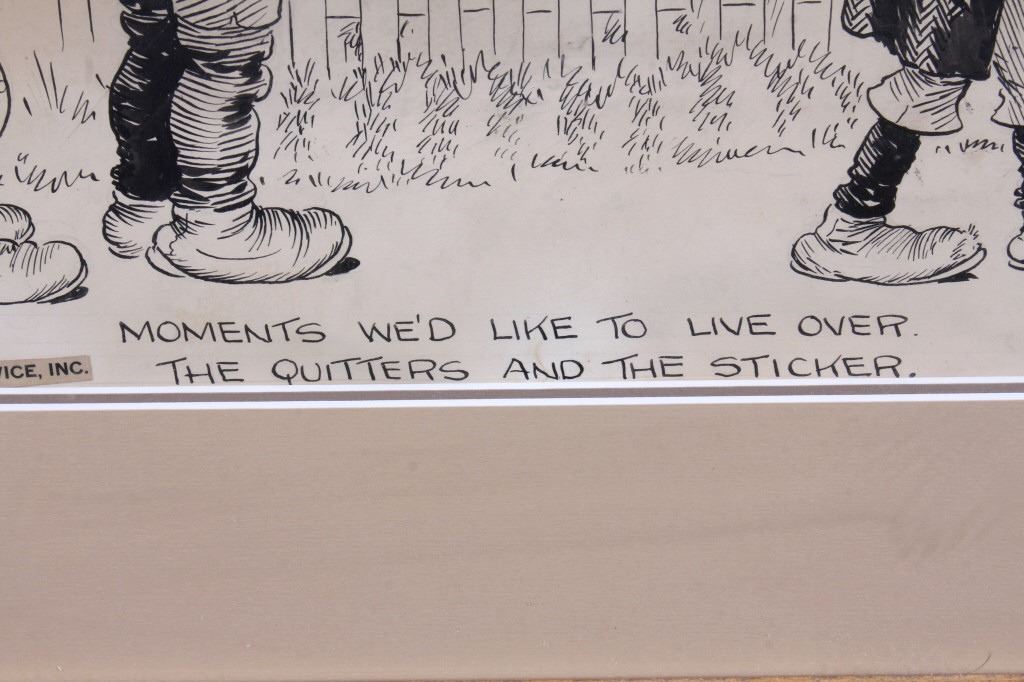 MOMENTS WE'D LIKE TO LIVE OVER.
THE QUITTERS AND THE STICKER.
INC.